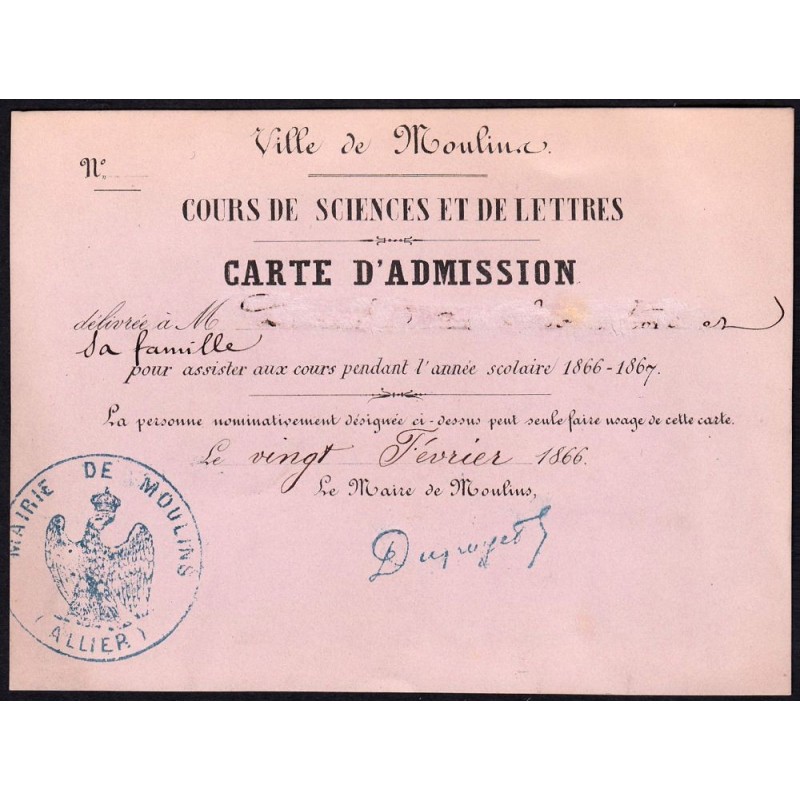 Ville de Moulins.
N°
COURS DE SCIENCES ET DE LETTRES
CARTE D'ADMISSION
délivrée à M et
sa famille
pour assister aux cours pendant l'année scolaire 1866-1867.
La personne nominativement désignée ci-dessus peut seule faire usage de cette carte.
Le vingt Février 1866.
Le Maire de Moulins,
MAIRIE DE MOULINS
(ALLIER)